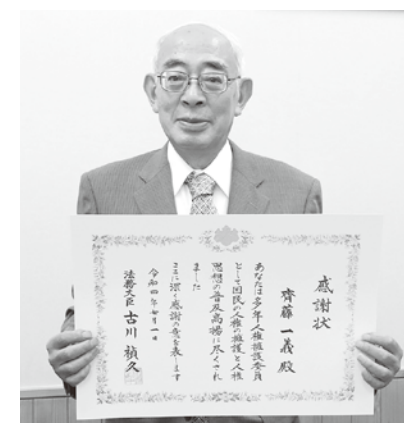 感謝状
齊藤 一義 殿
あなたは多年人権擁護委員
として国民の人権の擁護と人権
思想の普及高揚に尽くされ
ました
ここに深く感謝の意を表します
令和四年七月一日
法務大臣 古川禎久